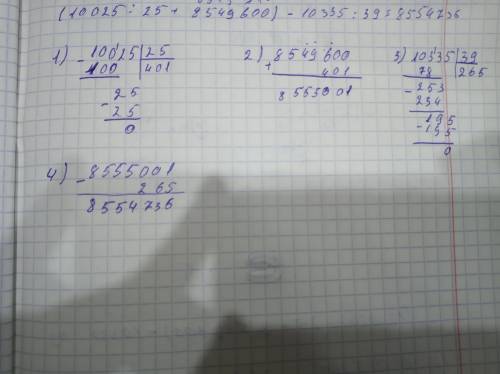 (10025 : 25 + 8549600) - 10335 : 39 = 8554736
1) - 10025 | 25
100 | 401
- 25
25
0
2) + 8549600
401
8555001
3) 10335 | 39
78 | 265
- 253
234
195
- 195
0
4) - 8555001
265
8554736